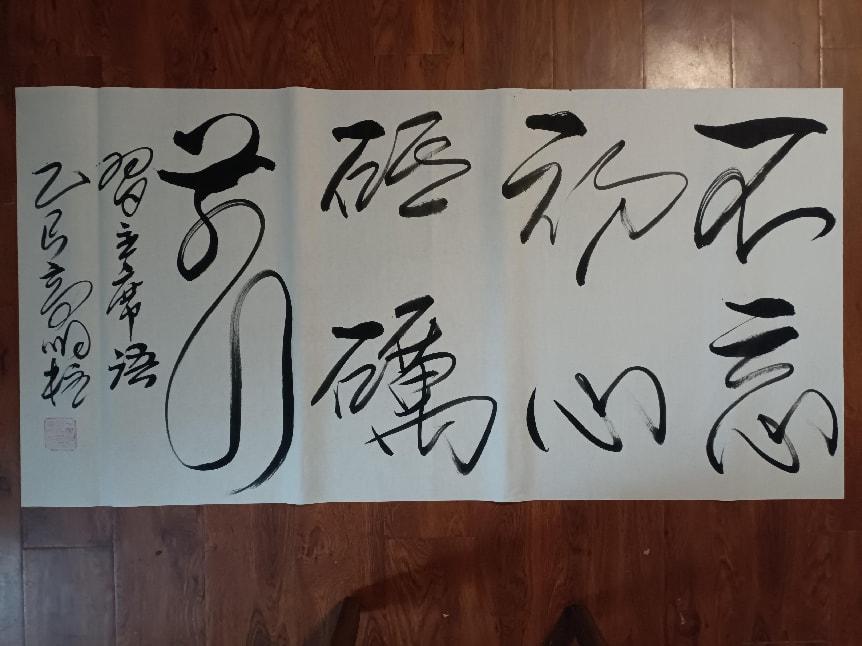 不忘
初心
砥礪
前行
習主席語
乙巳高明柱